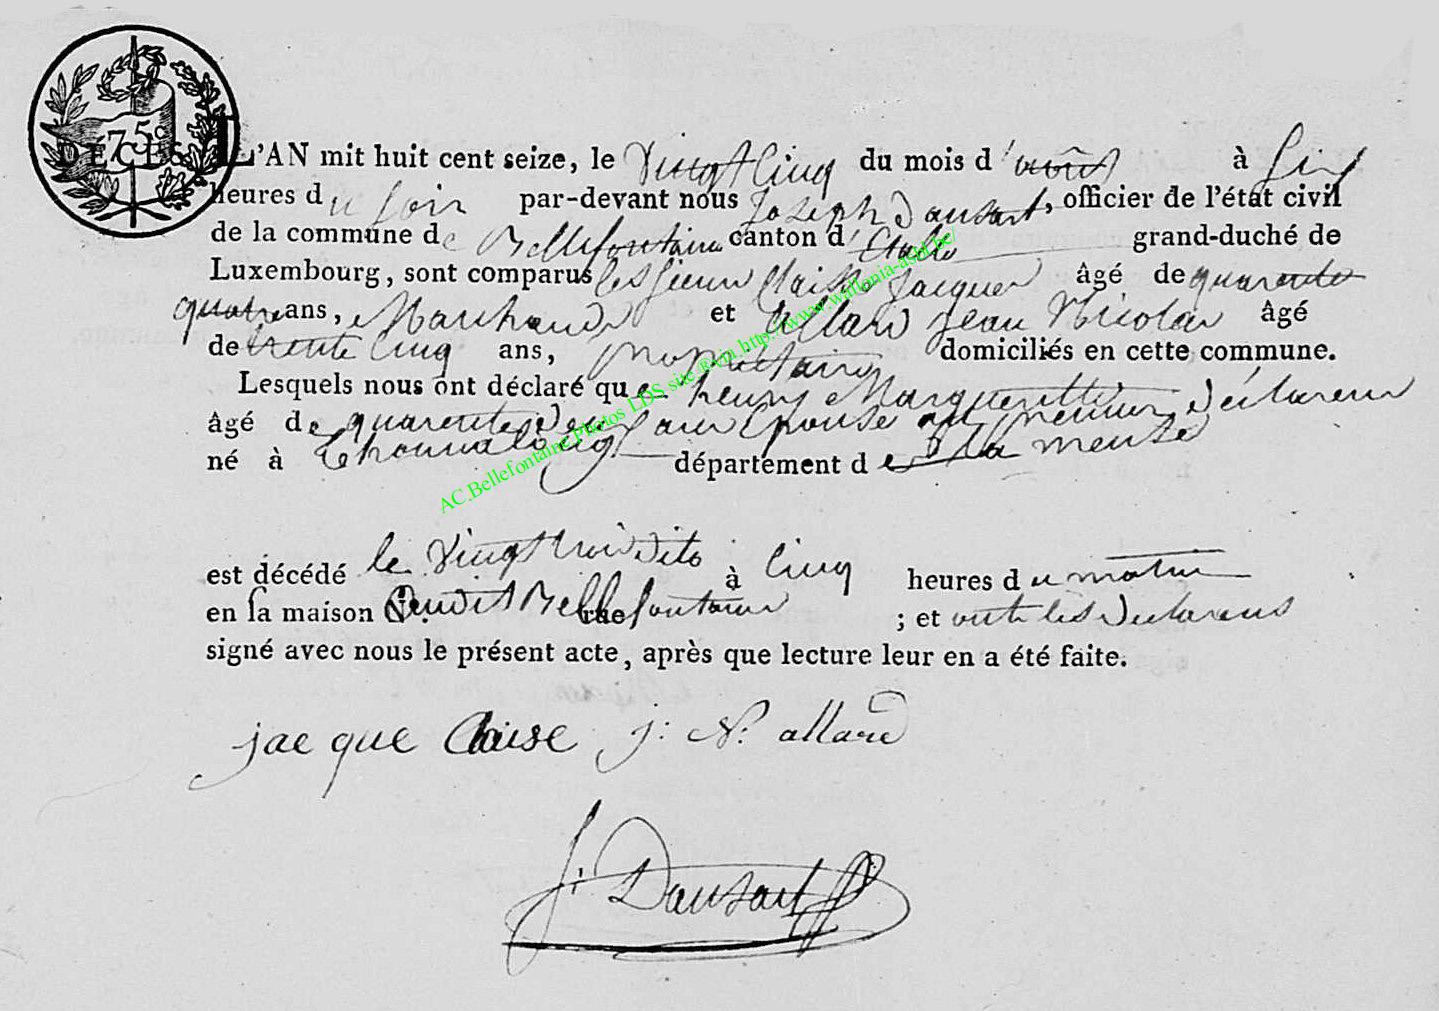 75c
DÉCÈS. L'AN mit huit cent seize, le Vingt Cinq du mois d'août à Six
heures du Soir par-devant nous Joseph Dausart, officier de l'état civil
de la commune de Bellefontaine canton d'Etalle grand-duché de
Luxembourg, sont comparus les Sieurs Claisse Jacques âgé de quarente
quatre ans, Marchand et Allard Jean Nicolas âgé
de trente Cinq ans, propriétaire domiciliés en cette commune.
Lesquels nous ont déclaré que henry Margueritte
âgé de quarente deux ans Epouse au premier déclarent
né à Thonnalong département de la meuse
est décédé le Vingt trois dito à Cinq heures du matin
en sa maison N. audit Bellefontaine rue ; et ont les declarens
signé avec nous le présent acte, après que lecture leur en a été faite.
jacque Claise j: N. allard
J: Dausart
AC.Bellefontaine.Photos LDS site @ via http://www.wallonia-asbl.be/